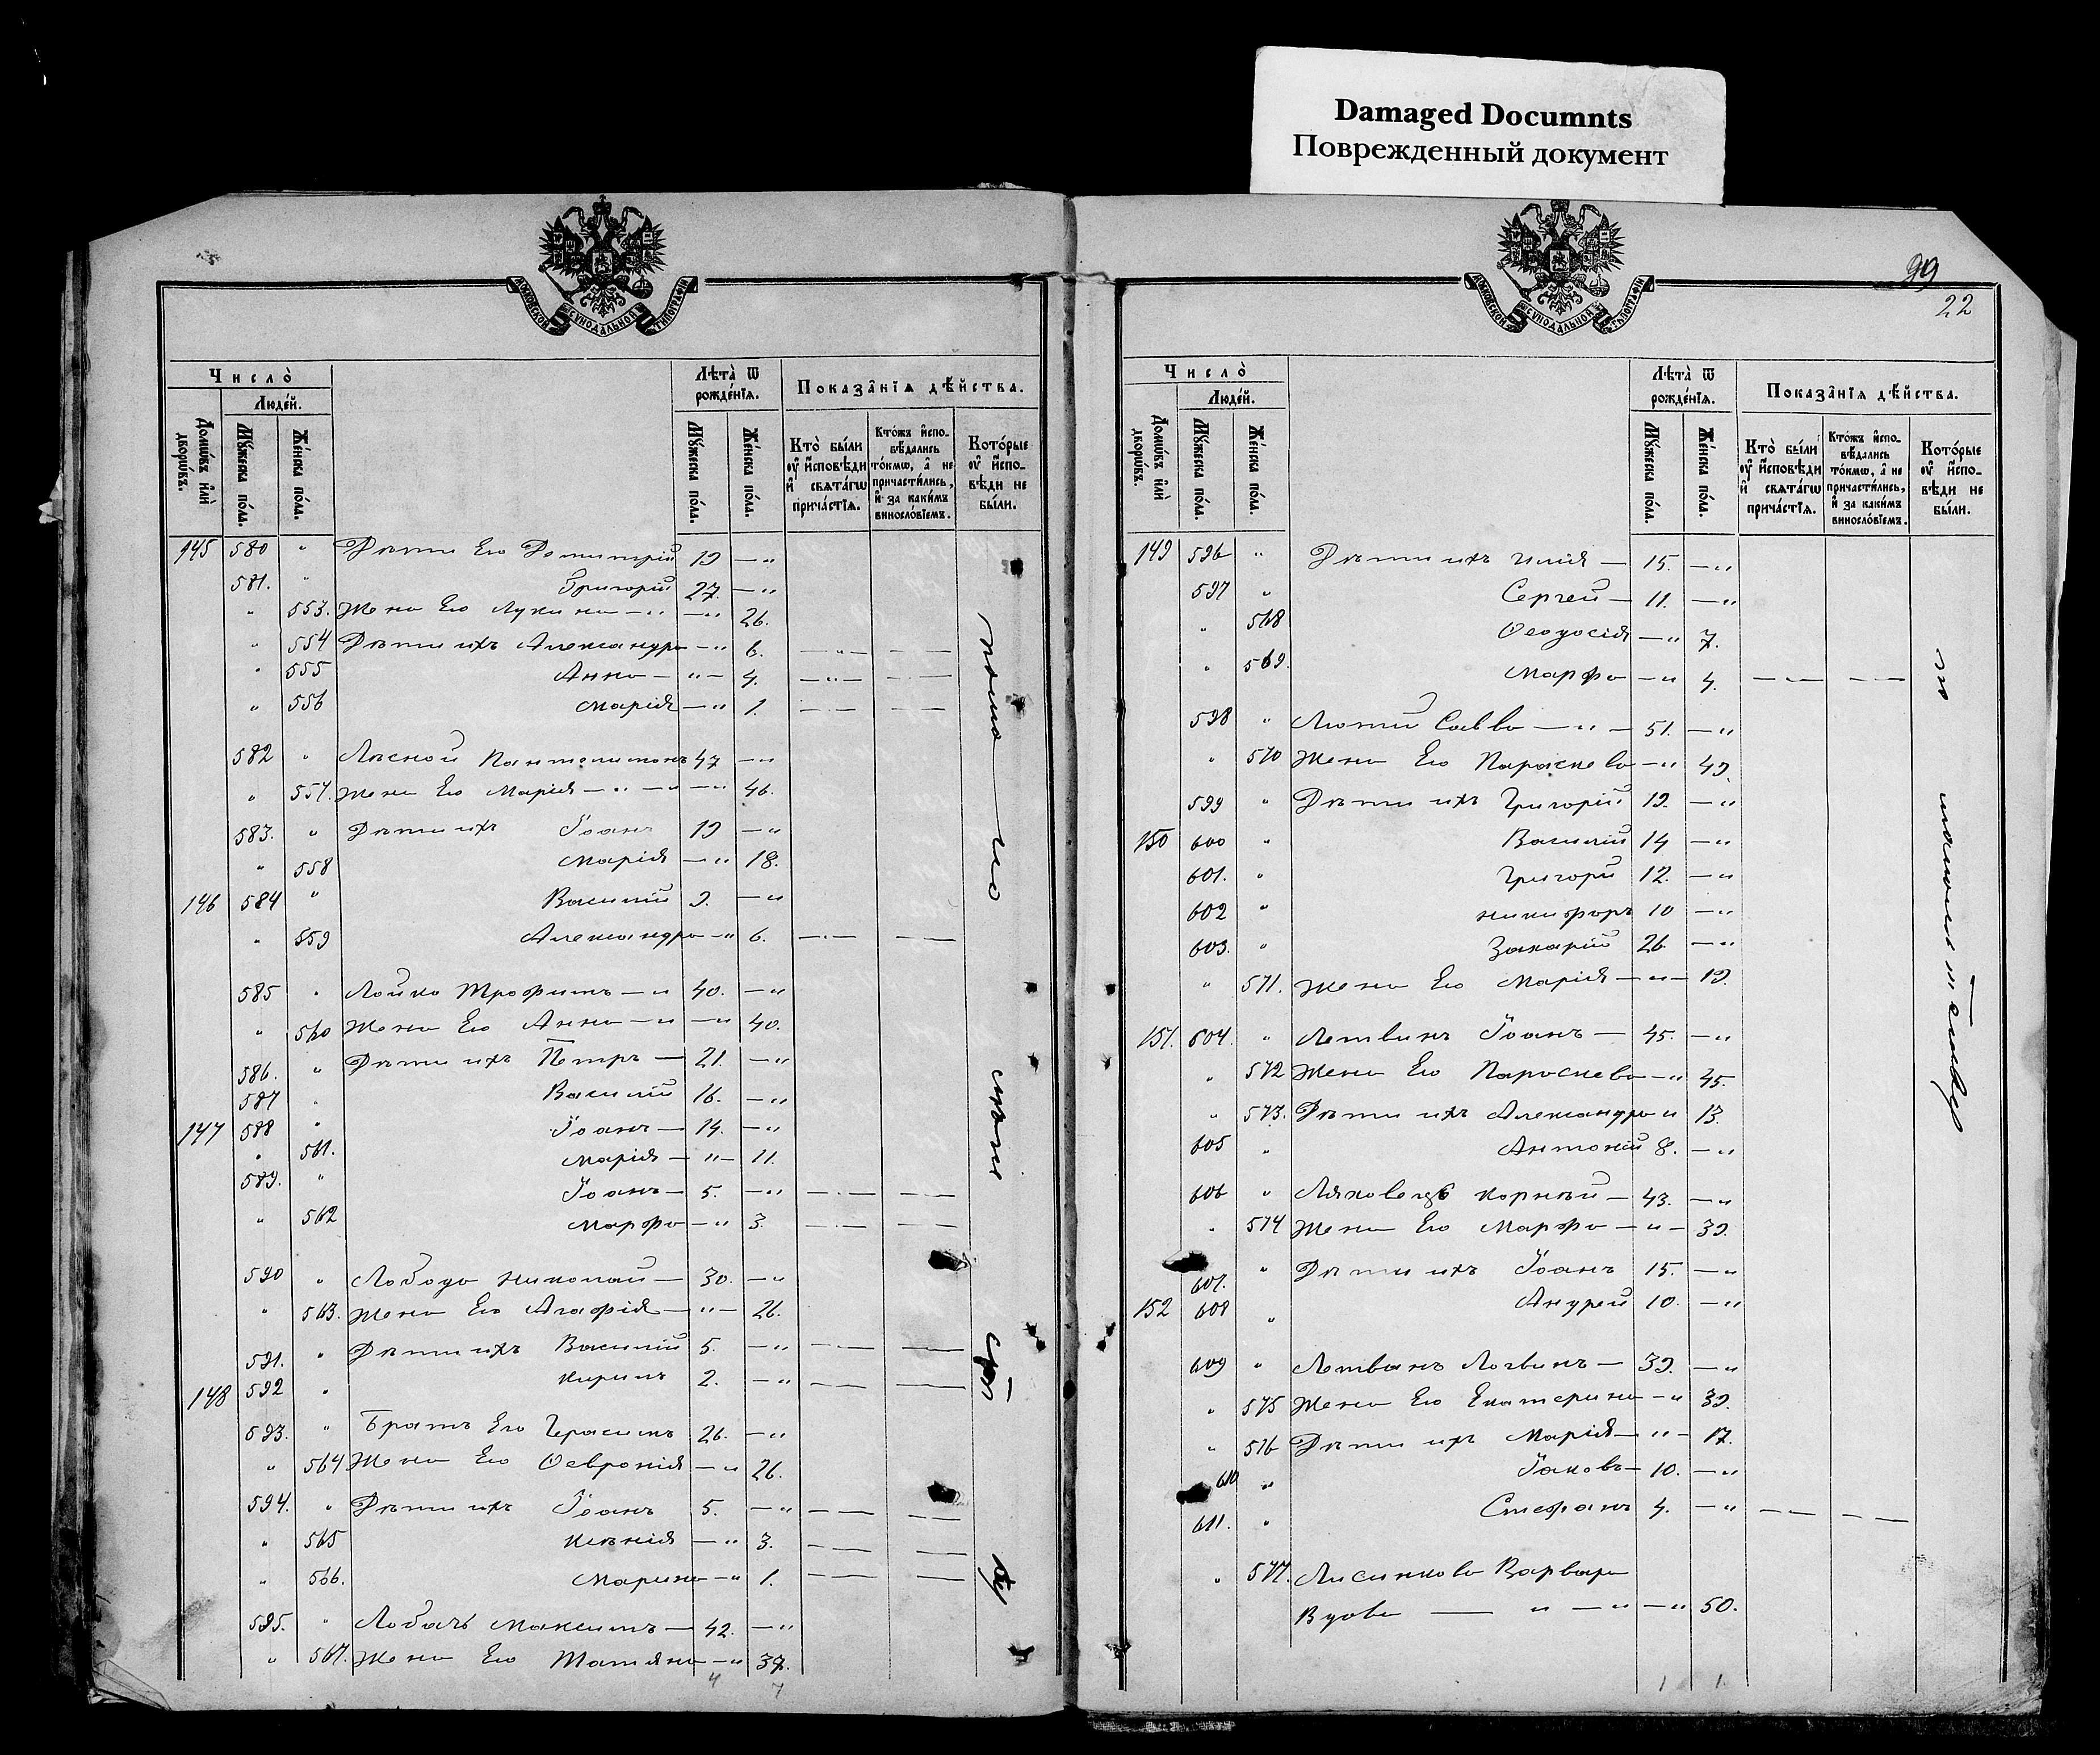 Damaged Documnts
Поврежденный документ
Московской Сѵнодальной Типографіи
Число̀
Люде́й.
Домѡ́въ и҆лѝ дворѡ́въ.
Мꙋ́жеска по́ла.
Же́нска по́ла.
Лѣ́та ѿ рожде́нїѧ.
Мꙋ́жеска по́ла.
Же́нска по́ла.
Показа̑нїѧ дѣ́йства.
Кто̀ бы́ли ᲂу҆ и҆сповѣ́ди и҆ свѧта́гѡ прича́стїѧ.
Кто́жъ и҆сповѣ́дались то́кмѡ, а҆ не причасти́лись, и҆ за каки́мъ виносло́вїемъ.
Кото́рые ᲂу҆ и҆сповѣ́ди не бы́ли.
145 580 " Дѣти Его Димитрій 19 — "
581. " Григорій 27. — "
" 553. Жена Его Лукина — " — " 26.
" 554 Дѣти ихъ Александра — " 6. — " — — · —
" 555 Анна — " — 4. — " — — · —
" 556 Марія — " 1. — · — — · —
582 " Лѣсной Пантелимонъ 47 — "
" 557. Жена Его Марія — " — " — " 46.
583. " Дѣти ихъ Іоанъ 19 — "
" 558 Марія — " 18.
146 584 " Василій 9. — "
" 559 Александра — " 6. — · — — —
585 " Лойко Трофимъ — " 40. — "
" 560 Жена Его Анна — " — " 40.
586. " Дѣти ихъ Петръ — 21. — "
587 " Василій 16. — "
147 588 " Іоанъ — 14. — "
" 561. Марія — " — 11.
589. " Іоанъ — 5. — " — · — — · —
" 562 Марфа — " 3. — · — — —
590 " Лобода Николай — 30. — "
" 563. Жена Его Агафія — " — 26.
591. " Дѣти ихъ Василій 5. — " — · — — —
148 592 " Кирилъ 2. — " — — — —
593. " Братъ Его Герасимъ 26. — "
" 564 Жена Его Ѳевронія — " 26.
594. " Дѣти ихъ Іоанъ 5. — " — — — —
" 565 Ксенія — " 3. — — — —
" 566. Марина — " 1. — — — —
595. " Лобачъ Максимъ — 42. — "
" 567. Жена Его Татіяна — " 37.
4 7
99
22
Московской Сѵнодальной Типографіи
Число̀
Люде́й.
Домѡ́въ и҆лѝ дворѡ́въ.
Мꙋ́жеска по́ла.
Же́нска по́ла.
Лѣ́та ѿ рожде́нїѧ.
Мꙋ́жеска по́ла.
Же́нска по́ла.
Показа̑нїѧ дѣ́йства.
Кто̀ бы́ли ᲂу҆ и҆сповѣ́ди и҆ свѧта́гѡ прича́стїѧ.
Кто́жъ и҆сповѣ́дались то́кмѡ, а҆ не причасти́лись, и҆ за каки́мъ виносло́вїемъ.
Кото́рые ᲂу҆ и҆сповѣ́ди не бы́ли.
149 596 " Дѣти ихъ Илія — 15. — "
597 " Сергей — 11. — "
" 568 Ѳеодосія — " 7.
" 569. Марфа — " 4. — — · — — · —
598 " Лютий Савва — " — 51. — "
" 570 Жена Его Параскева — " 49.
599 " Дѣти ихъ Григорій 19. — "
150 600 " Василій 14 — "
601. " Григорій 12. — "
602 " Никифоръ 10 — "
603. " Захарій 26 — "
" 571. Жена Его Марія — " — 19.
151. 604. " Летвинъ Іоанъ — 45. — "
" 572 Жена Его Параскева — " 45.
" 573. Дѣти ихъ Александра " 13.
605 " Антоній 8. — "
606 " Ляховецъ Корнѣй — 43. — "
" 574 Жена Его Марфа — " — 39.
607. " Дѣти ихъ Іоанъ 15. — "
152 608 " Андрей 10. — "
609 " Летвинъ Логвинъ — 39. — "
" 575 Жена Его Екатерина — " 39.
" 576 Дѣти ихъ Марія — " — 17.
610 " Іаковъ — 10. — "
611. " Стефанъ 4. — " — — — · —
" 577. Лисинкова Варвара
Вдова — " — " — " 50.
1 1.